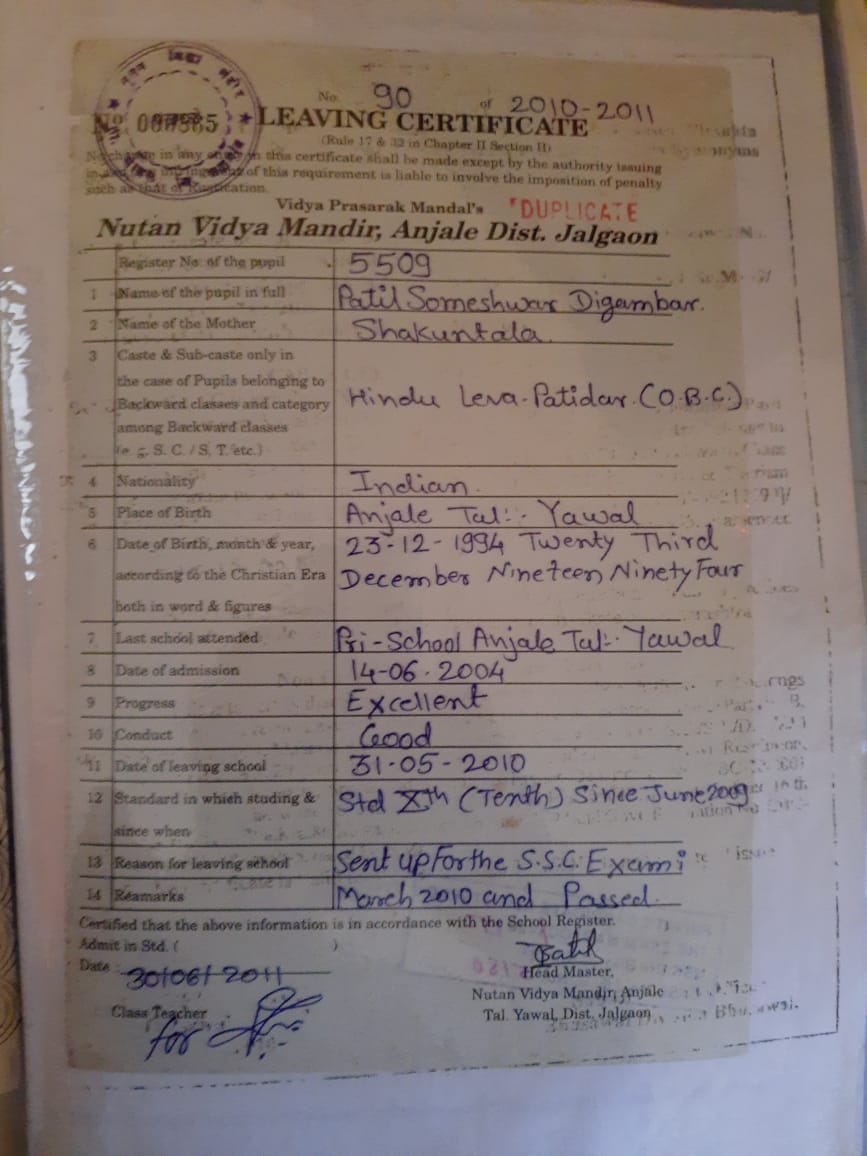 No. 90 of 2010-2011
No 000585 LEAVING CERTIFICATE
(Rule 17 & 32 in Chapter II Section II)
No change in any in this certificate shall be made except by the authority issuing
of this requirement is liable to involve the imposition of penalty
such as that of Rustication.
Vidya Prasarak Mandal's "DUPLICATE
Nutan Vidya Mandir, Anjale Dist. Jalgaon
Register No. of the pupil 5509
1 Name of the pupil in full Patil Someshwar Digambar.
2 Name of the Mother Shakuntala.
3 Caste & Sub-caste only in
the case of Pupils belonging to
Backward classes and category Hindu Leva-Patidar (O.B.C.)
among Backward classes
(e. g. S. C. / S. T. etc.)
4 Nationality Indian.
5 Place of Birth Anjale Tal:- Yawal
6 Date of Birth, month & year, 23-12-1994 Twenty Third
according to the Christian Era December Nineteen Ninety Four
both in word & figures
7 Last school attended Pri-School Anjale Tal:- Yawal
8 Date of admission 14-06-2004
9 Progress Excellent
10 Conduct Good
11 Date of leaving school 31-05-2010
12 Standard in which studing & Std Xth (Tenth) Since June 2009
since when
13 Reason for leaving school Sent up For the S.S.C. Exami
14 Reamarks March 2010 and Passed.
Certified that the above information is in accordance with the School Register.
Admit in Std. ( )
Date 30/06/2011
Head Master,
Nutan Vidya Mandir, Anjale
Class Teacher Tal. Yawal, Dist. Jalgaon
for